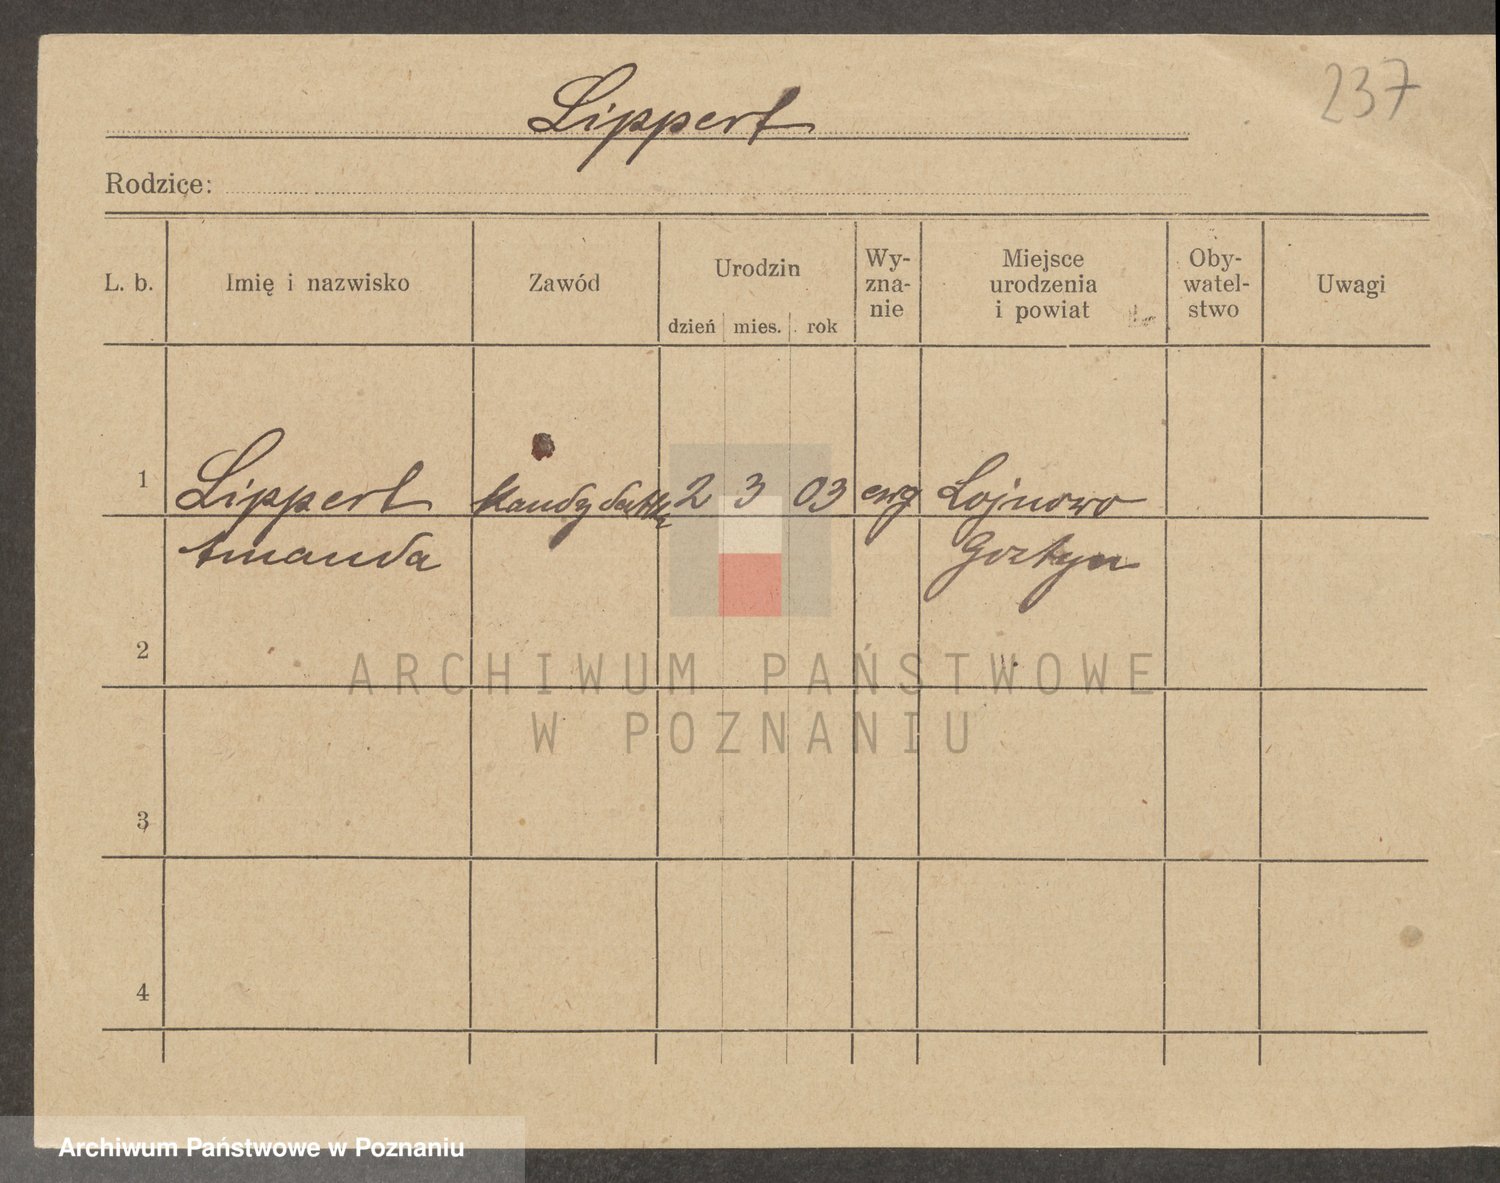 237
Lippert
Rodzice:
L. b. Imię i nazwisko Zawód Urodzin dzień mies. rok Wy-zna-nie Miejsce urodzenia i powiat Oby-watel-stwo Uwagi
1 Lippert Kandydatka 2 3 03 ewg Lojnowo
Amanda Gostyn
2
ARCHIWUM PAŃSTWOWE
W POZNANIU
3
4
Archiwum Państwowe w Poznaniu